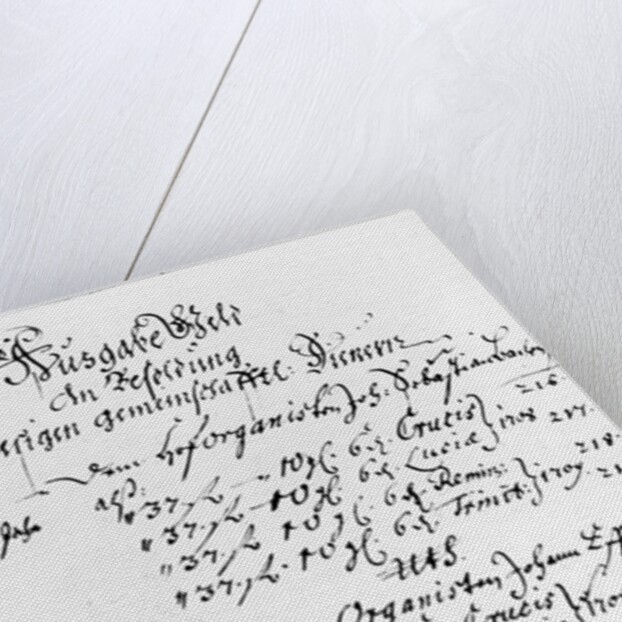 Ausgabe Geld
An Besoldung
gemeinschafftl: Dienern
Dem Hoforganisten Joh: Sebastian Bachen
216.
37. fl. 10 gl. 6 ₰. Crucis } 1708 217.
37. fl. 10 gl. 6 ₰. Luciæ
218.
37. fl. 10 gl. 6 ₰. Remin: } 1709
37. fl. 10 gl. 6 ₰. Trinit:
Organisten Johann Eff
Crucis